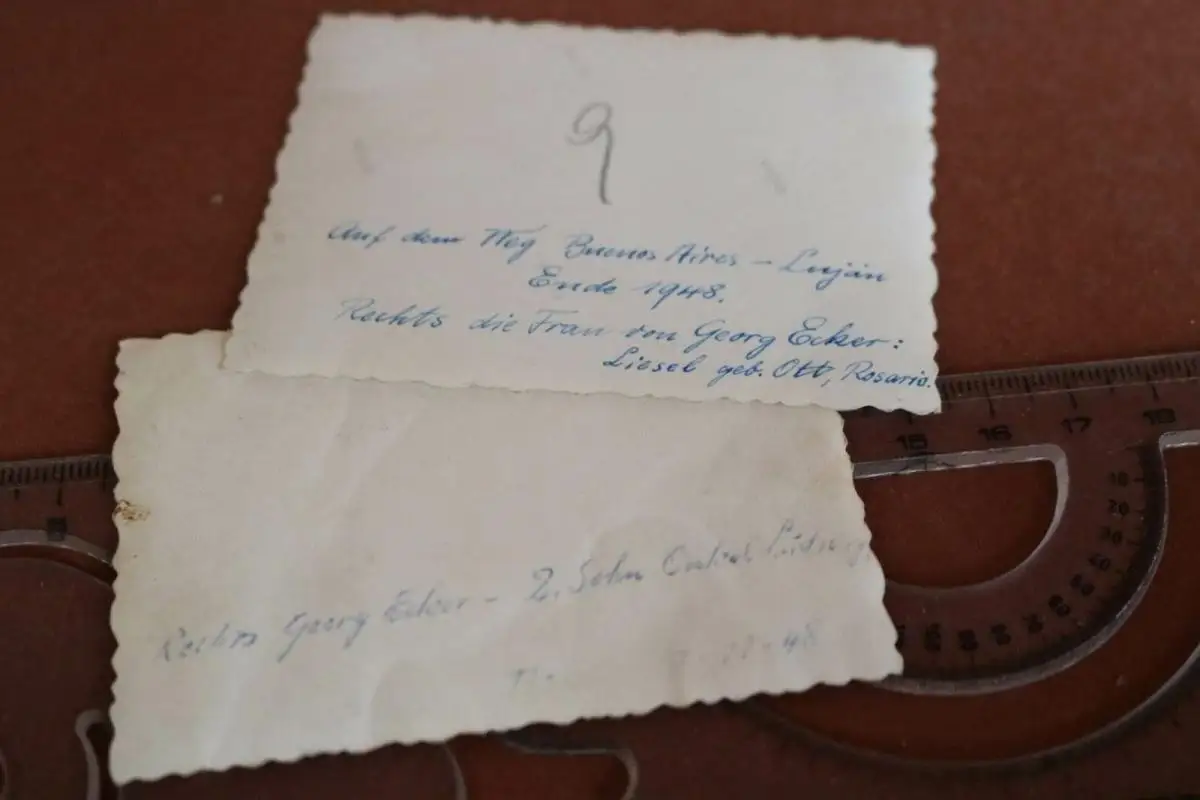 9
Auf dem Weg Buenos Aires – Luján
Ende 1948.
Rechts die Frau von Georg Ecker:
Liesel geb. Ott, Rosario.
15 16 17 18
Rechts Georg Ecker – 2. Sohn Onkel Ludwig
48